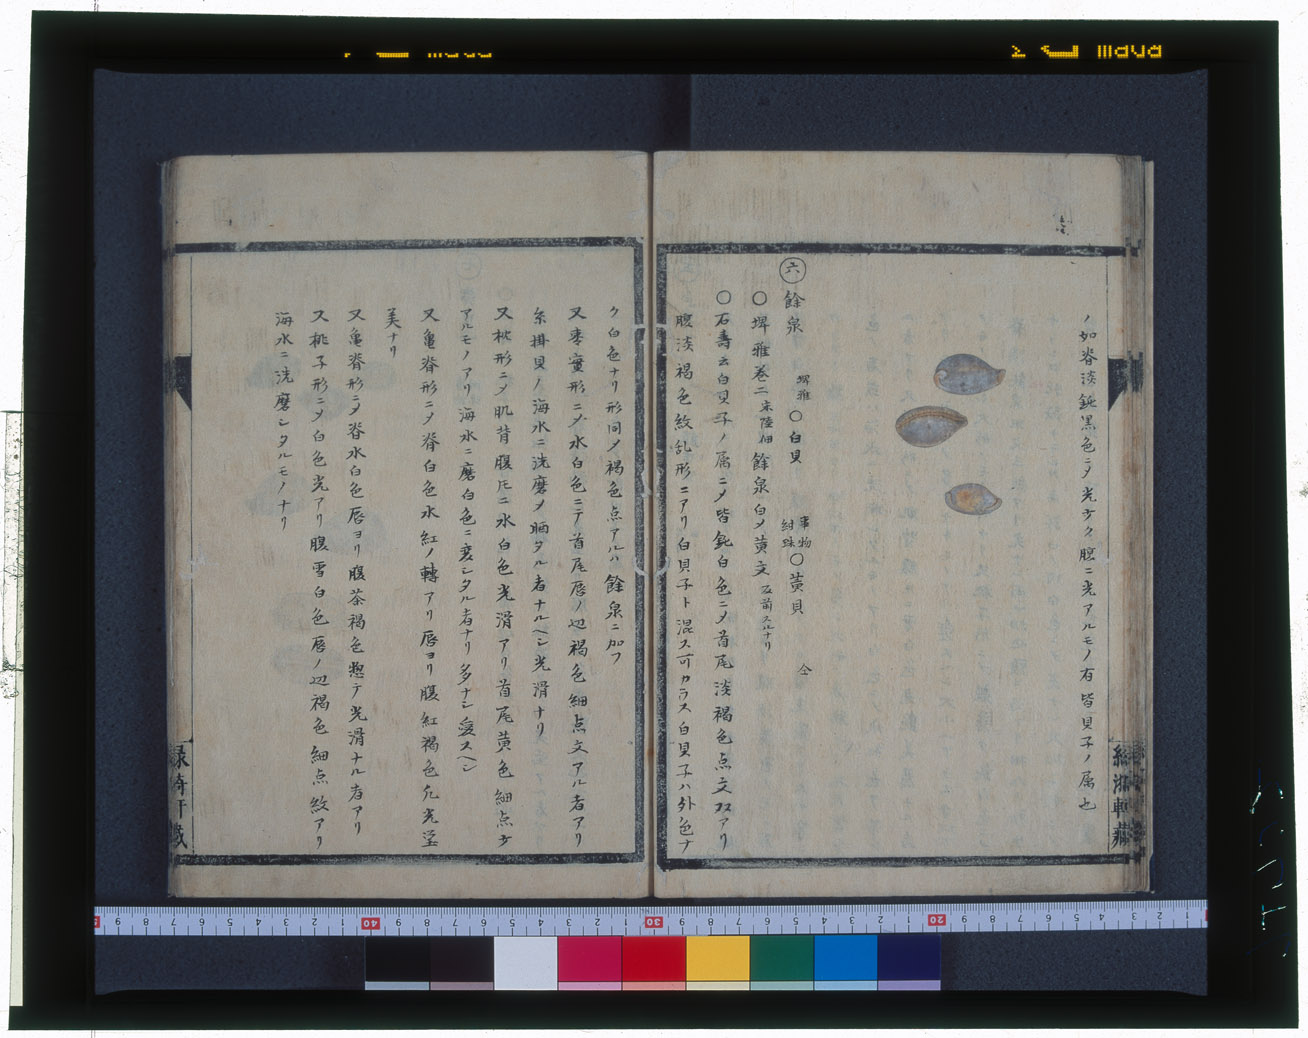 ノ如脊淡鈍黒色ニメ光少ク腹ニ光アルモノ有皆貝子ノ属也
㊅餘泉 埤雅 〇白貝 事物紺珠 〇黄貝 仝
〇埤雅巻二 宋陸佃 餘泉白メ黄文
〇石壽云白貝子ノ属ニメ皆鈍白色ニメ首尾淡褐色点文双アリ
腹淡褐色紋乱形ニアリ白貝子ト混ス可カラス白貝子ハ外色ナ
ク白色ナリ形同メ褐色点アルハ餘泉ニ加フ
又棗實形ニメ水白色ニテ首尾唇ノ辺褐色細点文アル者アリ
糸掛貝ノ海水ニ洗磨メ晒タル者ナルヘシ光滑ナリ
又枕形ニメ肌背腹圧ニ水白色光滑アリ首尾黄色細点少
アルモノアリ海水ニ磨白色ニ変シタル者ナリ多ナシ愛スヘシ
又亀脊形ニメ脊白色水紅ノ轉アリ唇ヨリ腹紅褐色尤光瑩
美ナリ
又亀脊形ニメ脊水白色唇ヨリ腹茶褐色惣テ光滑ナル者アリ
又桃子形ニメ白色光アリ腹雪白色唇ノ辺褐色細点紋アリ
海水ニ洗磨シタルモノナリ